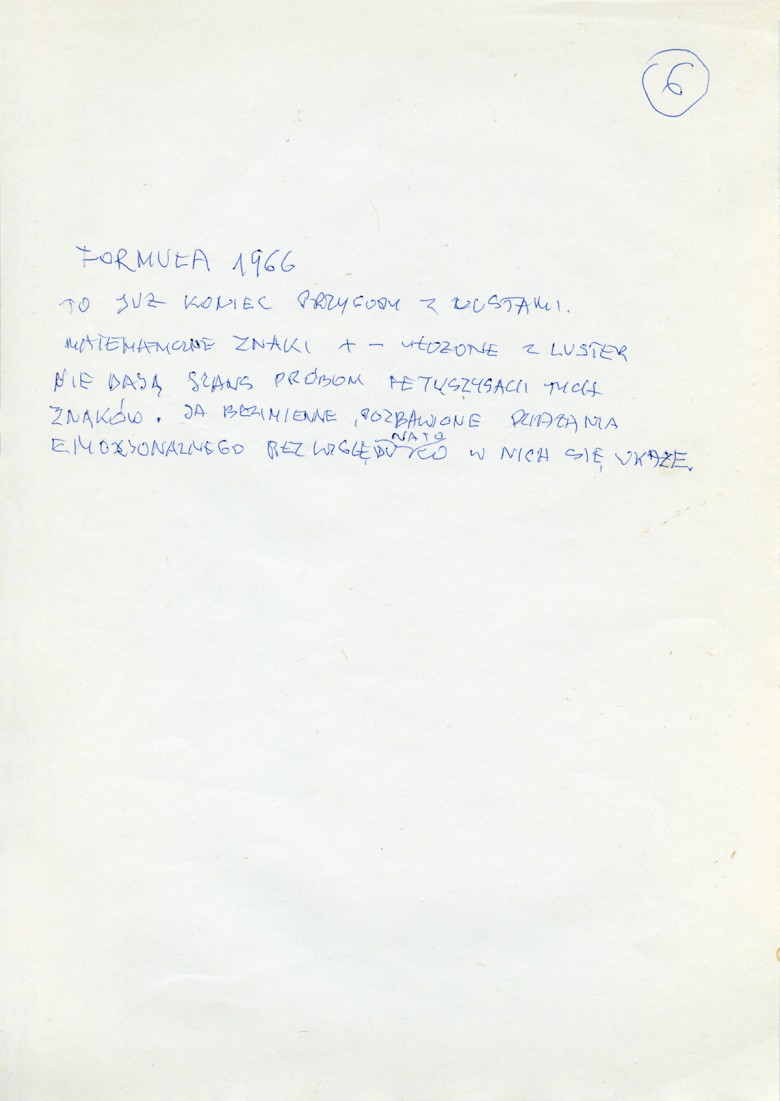 6
FORMUŁA 1966
TO JUŻ KONIEC PRZYGODY Z LUSTAMI.
MATEMATYCZNE ZNAKI + - UŁOŻONE Z LUSTER
NIE DAJĄ SZANS PRÓBOM FETYSZYSACJI TYCH
ZNAKÓW. SĄ BEZIMIENNE, POZBAWIONE
NATO
EMOCJONALNEGO BEZ WZGLĘDU CO W NICH SIĘ UKAŻE.